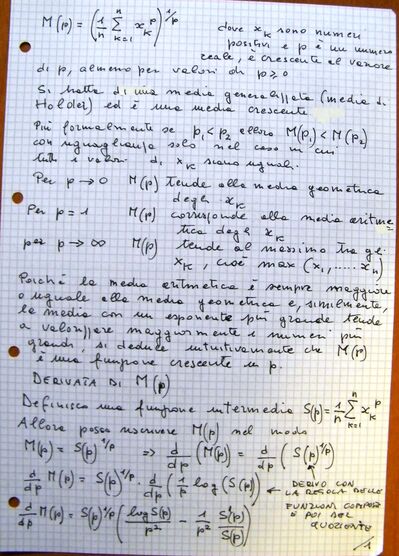 M(p) = (1/n ∑_{k=1}^{n} x_k^p)^{1/p} dove x_k sono numeri
positivi e p è un numero
reale, è crescente al variare
di p, almeno per valori di p ≥ 0
Si tratta di una media generalizzata (media di
Holder) ed è una media crescente.
Più formalmente se p₁ < p₂ allora M(p₁) < M(p₂)
con uguaglianza solo nel caso in cui
tutti i valori di x_k siano uguali.
Per p → 0 M(p) tende alla media geometrica
degli x_k
Per p = 1 M(p) corrisponde alla media aritme=
tica degli x_k
per p → ∞ M(p) tende al massimo tra gli
x_k, cioè max (x₁, ..... x_n)
Poiché la media aritmetica è sempre maggiore
o uguale alla media geometrica e, similmente,
la media con un esponente più grande tende
a valorizzare maggiormente i numeri più
grandi, si deduce intuitivamente che M(p)
è una funzione crescente in p.
DERIVATA DI M(p)
Definisco una funzione intermedia S(p) = 1/n ∑_{k=1}^{n} x_k^p
Allora posso riscrivere M(p) nel modo
M(p) = S(p)^{1/p} => d/dp (M(p)) = d/dp (S(p)^{1/p})
d/dp M(p) = S(p)^{1/p} · d/dp (1/p log (S(p)) ← DERIVO CON
LA REGOLA DELLE
FUNZIONI COMPOSTE
E POI DEL
QUOZIENTE
d/dp M(p) = S(p)^{1/p} (log S(p)/p² - 1/p² S'(p)/S(p))
1